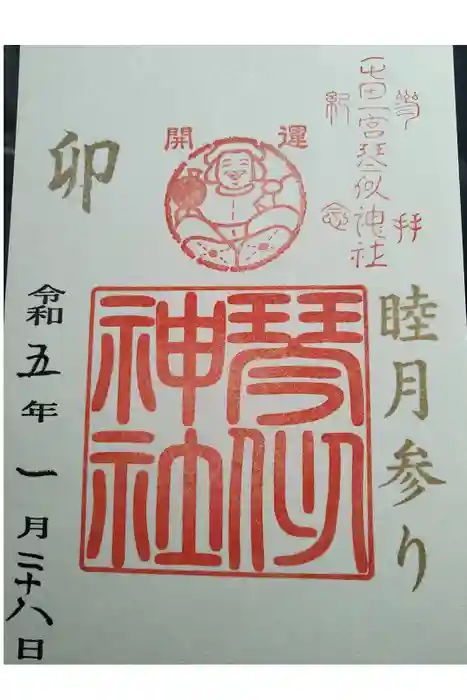 参拝
屯田一宮琴似神社
紀念
睦月参り
開運
琴似
神社
卯
令和五年一月二十八日